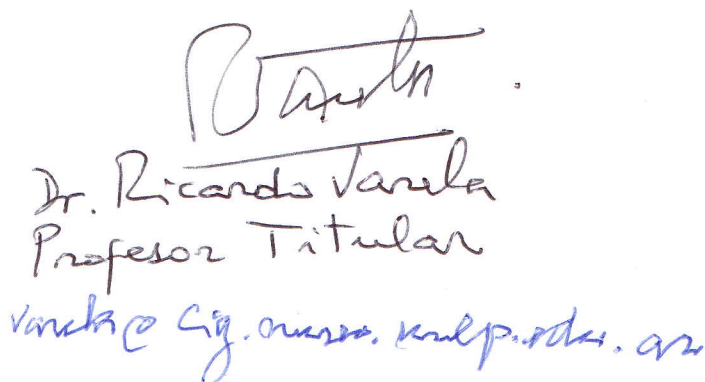 RVarela
Dr. Ricardo Varela
Profesor Titular
varela@cig.museo.unlp.edu.ar